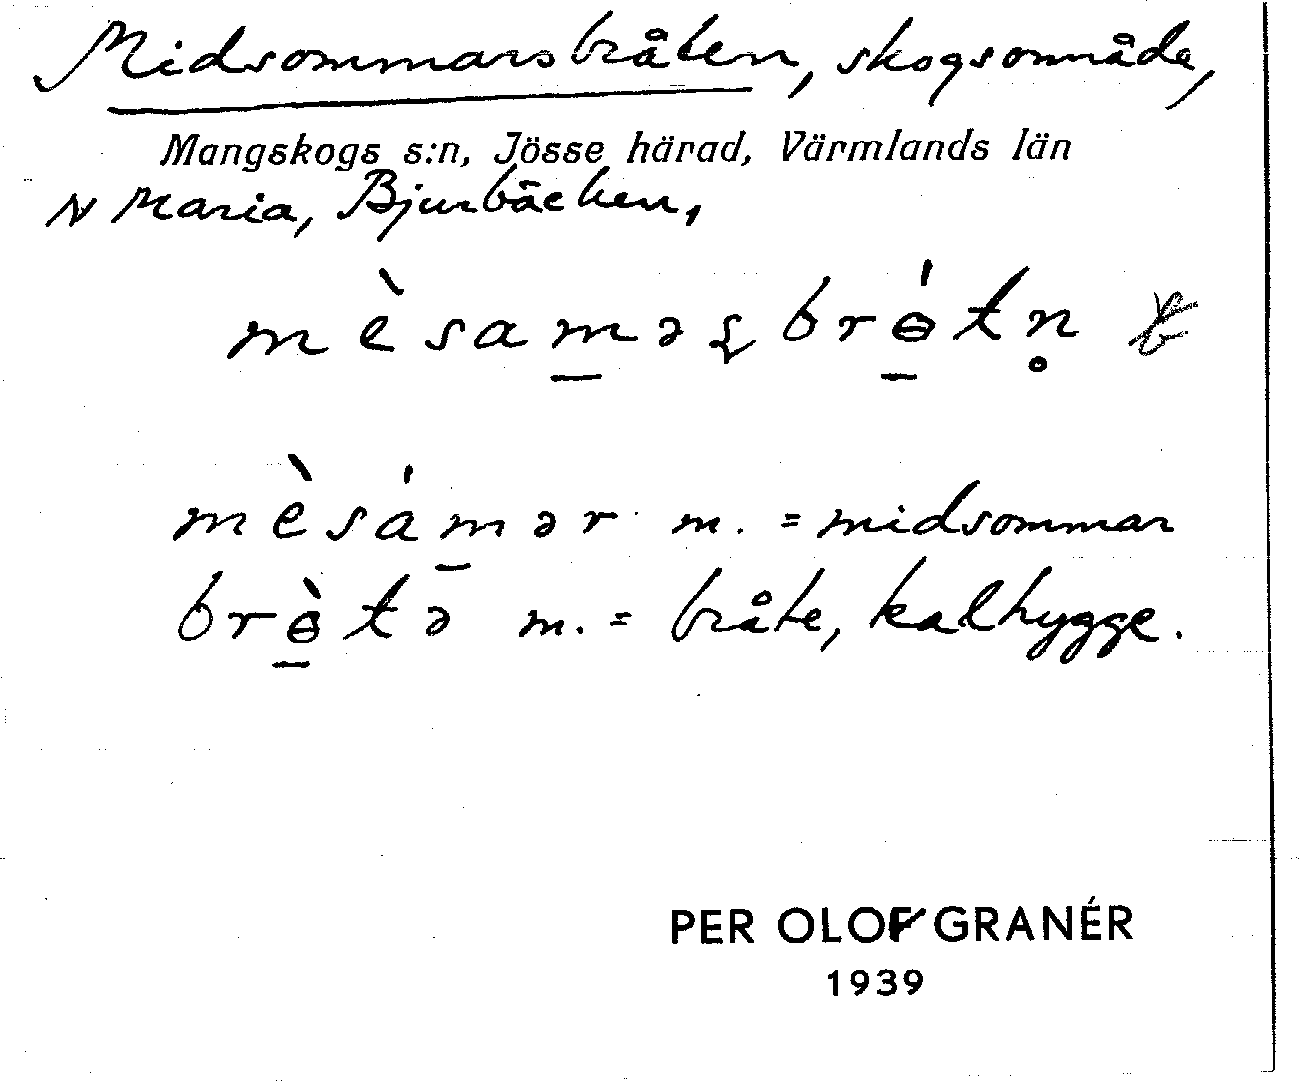 Midsommarsbråten, skogsområde,
Mangskogs s:n, Jösse härad, Värmlands län
N Maria, Bjurbäcken,
mèsam̱əʂbrɵ̱́tn̥
mèsám̱ər m. = midsommar
brɵ̱̀tə m. = bråte, kalhygge.
PER OLOF GRANÉR
1939